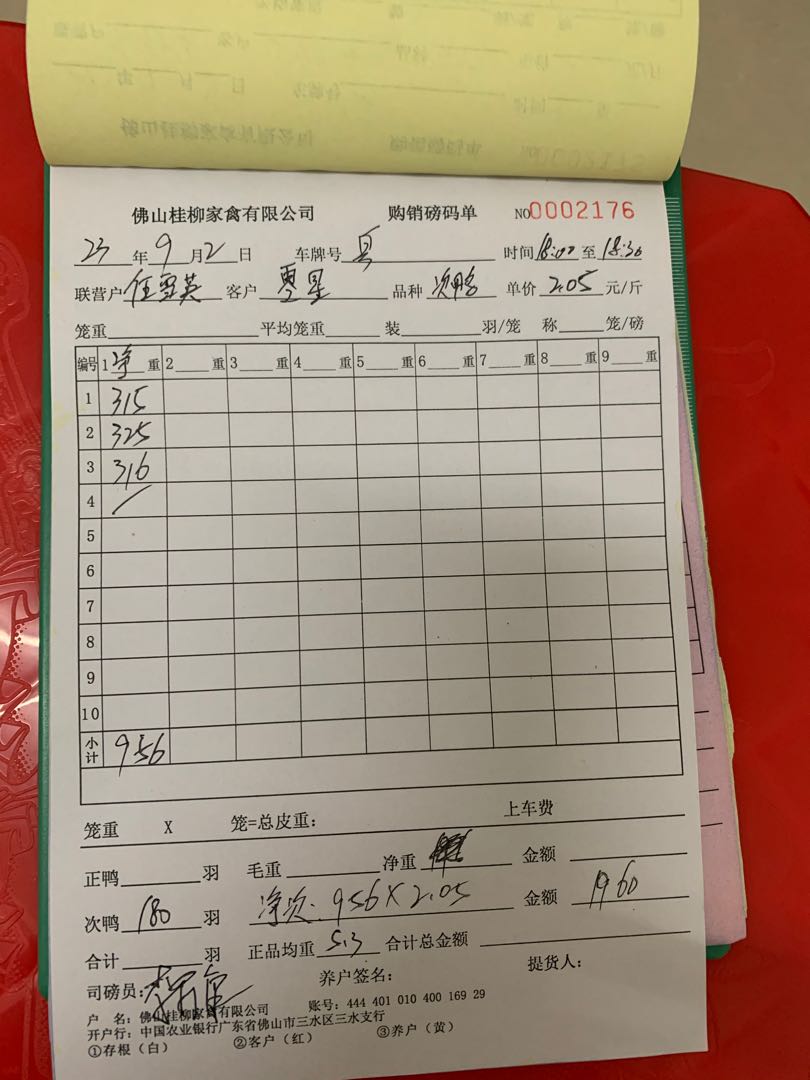 佛山桂柳家禽有限公司 购销磅码单 NO 0002176
23 年 9 月 2 日 车牌号 时间 18:00 至 18:30
联营户 任雪英 客户 零星 品种 次鸭 单价 2.05 元/斤
笼重 平均笼重 装 羽/笼 称 笼/磅
编号 1 净 重 2 重 3 重 4 重 5 重 6 重 7 重 8 重 9 重
1 315
2 325
3 316
4
5
6
7
8
9
10
小计 956
笼重 X 笼=总皮重： 上车费
正鸭 羽 毛重 净重 金额
次鸭 180 羽 净次：956X2.05 金额 1960
合计 羽 正品均重 5.3 合计总金额
司磅员： 养户签名： 提货人：
户 名：佛山桂柳家禽有限公司 账号：444 401 010 400 169 29
开户行：中国农业银行广东省佛山市三水区三水支行
①存根（白） ②客户（红） ③养户（黄）